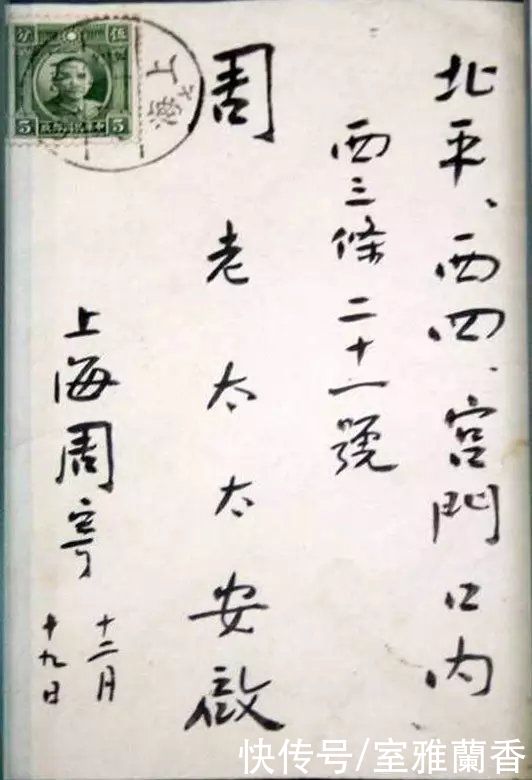 北平、西四、宮門口内
西三條二十一號
周老太太安啟
上海周寄
十二月
十九日
伍
分
5
5
上海
快传号/室雅蘭香